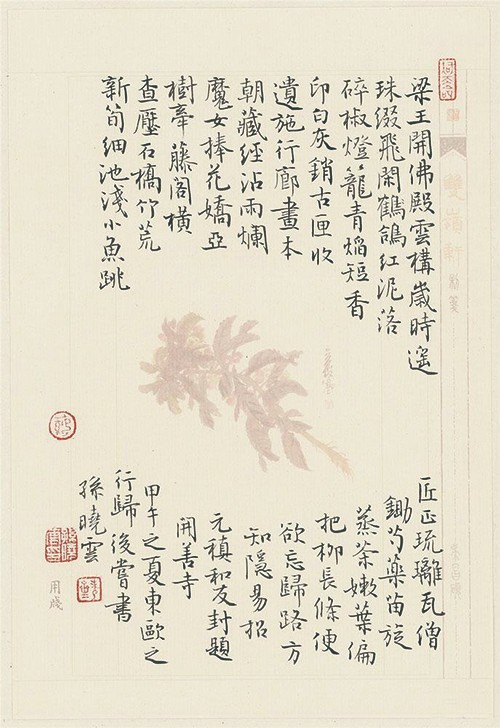 梁王開佛殿雲構歲時遙
珠綴飛閑鶴鴿紅泥落
碎椒燈籠青焰短香
印白灰銷古匣收
遺施行廊畫本
朝藏經沾雨爛
魔女捧花嬌亞
樹牽藤閣橫
查壓石橋竹荒
新筍細池淺小魚跳
匠正琉璃瓦僧
鋤芍藥苗旋
蒸茶嫩葉偏
把柳長條便
欲忘歸路方
知隱易招
元稹和友封題
開善寺
甲午之夏東歐之
行歸後嘗書
孫曉雲
用牋